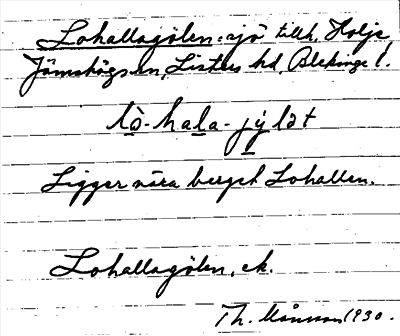 Lohallagölen, sjö tillh. Holje,
Jämshögs sn, Listers hd, Blekinge l.
lò-hala-jỳlət
Ligger nära bergst Lohallen.
Lohallagölen, ek.
Th. Månsson 1930.